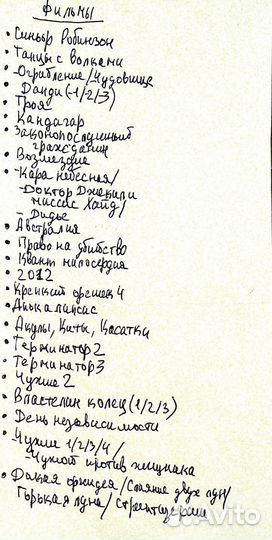 Фильмы
• Синьор Робинзон
• Танцы с волками
• Ограбление/Чудовище
Данди (-1/2/3)
• Троя
• Кандагар
• Законопослушный
гражданин
• Возмездие
• -Кара небесная/
-Доктор Джекилл и
миссис Хайд/
- Дидье
• Австралия
• Право на убийство
• Квант милосердия
• 2012
• Крепкий орешек 4
• Апокалипсис
• Акулы, Киты, Косатки
• Терминатор 2
• Терминатор 3
• Чужие 2
• Властелин колец (1/2/3)
• День независимости
• -Чужие 1/2/3/4/
Чужой против хищника
• Дикая орхидея/Слияние двух лун/
Горькая луна/Стриптизерши
Avito